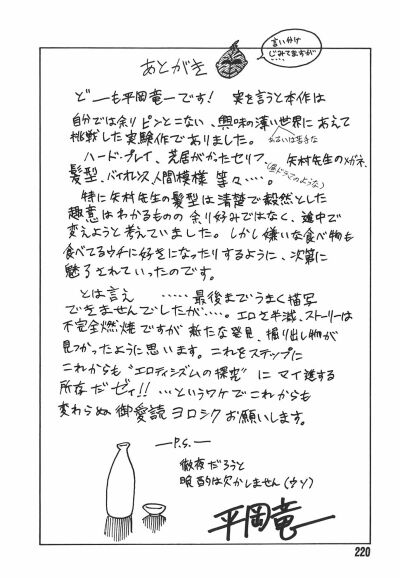 あとがき
言い分け
じみてますが…
どーも平岡竜一です! 実を言うと本作は
自分では余りピンとこない、興味の薄い世界にあえて
あるいは苦手な
挑戦した実験作でありました。
ハード・プレイ、芝居がかったセリフ、矢村先生のメガネ、
(昼ドラマのような)
髪型、バイオレンス、人間模様 等々‥‥。
特に矢村先生の髪型は清楚で毅然とした
趣意はわかるものの 余り好みではなく、途中で
変えようと考えていました。しかし嫌いな食べ物も
食べてるウチに好きになったりするように、次第に
魅了されていったのです。
とは言え ‥‥‥最後までうまく描写
できませんでしたが‥‥。エロさ半減、ストーリーは
不完全燃焼ですが 新たな発見、掘り出し物が
見つかったように思います。これをステップに
これからも“エロティシズムの探究” に マイ進する
所存だゼィ!! …というワケでこれからも
変わらぬ御愛読ヨロシクお願いします。
―P.S.―
徹夜だろうと
晩酌は欠かしません(ウソ)
平岡竜一
220